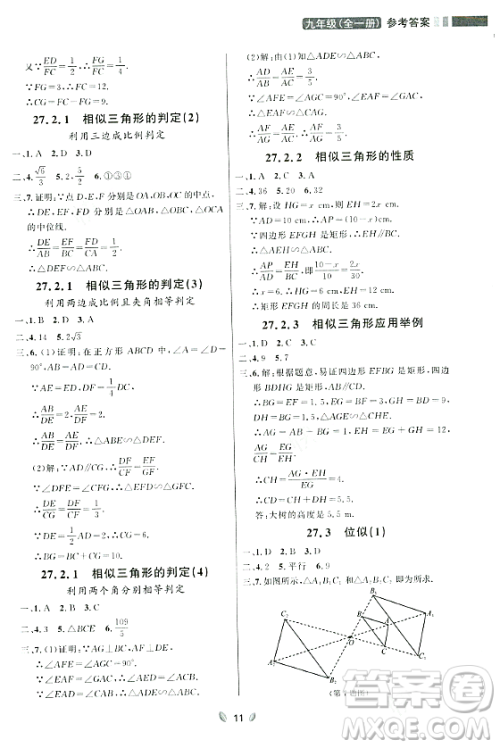 九年级(全一册) 参考答案
∵FG=3, ∴CF=6.
∴FG/CF=1/2.
27.2.1 相似三角形的判定(2)
利用三边成比例判定
一、1. A 2. D 3. A
二、4. √6/3 5. √2/2 6. ①③④
三、7. 证明:∵点 D,E,F 分别为 OA,OB,OC 的中点,
∴DE,DF,EF 分别是△OAB,△OAC,△OBC
的中位线.
∴DE/AB=DF/AC=EF/BC=1/2.
∴△ABC∽△DEF.
27.2.1 相似三角形的判定(3)
利用两边成比例且夹角相等判定
一、1. B 2. D 3. C
二、4. 2 5. 2√3
三、6. (1)证明:在正方形 ABCD 中,∠A=∠D=90°,
AB=AD=CD.
∵AE=ED, DF=1/4 DC,
∴AE/AB=DF/DE=1/2. ∴△ABE∽△DEF.
(2)解:∵∠D=∠FCG=90°,
∠DFE=∠CFG,
∴△DEF∽△CGF.
∴DE/CG=DF/CF=1/3.
∵DE=1/2 AD=2, ∴CG=6.
∴BG=10.
27.2.1 相似三角形的判定(4)
利用两个角分别相等判定
一、1. A 2. D 3. A
二、4. 3 5. △BCE 6. 109/5
三、7. (1)证明:∵AG⊥BC, AF⊥DE,
∴∠AFE=∠AGC=90°.
∵∠EAF=∠GAC,
∴∠AED=∠ACB.
∵∠EAD=∠CAB,
∴△ADE∽△ABC.
(2)解:由(1)知△ADE∽△ABC,
∴AD/AB=AE/AC=3/5.
∵∠AFE=∠AGC, ∠EAF=∠GAC,
∴△EAF∽△CAG.
∴AF/AG=AE/AC=3/5.
27.2.2 相似三角形的性质
一、1. A 2. B 3. C
二、4. 36 5. 20 6. 32
三、7. 解:设 HG=x cm,则 EH=2x cm.
∵AD⊥BC, ∴AP⊥EH.
∵AD=10 cm, ∴AP=(10-x) cm.
∵四边形 EFGH 是矩形, ∴EH∥BC.
∴△AEH∽△ABC.
∴AP/AD=EH/BC, 即(10-x)/10=2x/30.
∴x=6.
∴矩形 EFGH 的周长是 36 cm.
27.2.3 相似三角形应用举例
一、1. D 2. C 3. C
二、4. 9 5. 7
三、6. 解:根据题意,易证四边形 EFBG 是矩形,四边
形 BDHG 是矩形.
∴BG=EF=DH, BF=EG, BD=GH.
∵∠AEG=∠CEH,
∠AGE=∠EHC=90°,
∴△AGE∽△CHE.
∴AG/CH=EG/EH.
∴CH=AG·EH/EG=4.
∴CD=CH+DH=5.5 m.
答:大树的高度是 5.5 m.
27.3 位似(1)
一、1. D 2. B 3. B
二、4. 2 5. 平行 6. 9
三、7. 如图所示,△A₁B₁C₁ 和△A₂B₂C₂ 即为所求.
C₂
B
A₁
C₁
O
A₂
A
C
B₂
(第7题图)
11